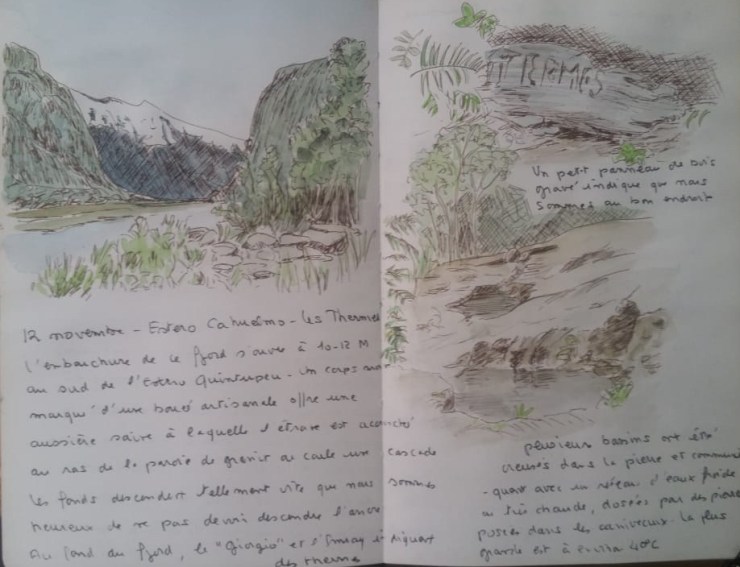 12 novembre - Estero Cahuelmo - Les Thermes
L'embouchure de ce fjord s'ouvre à 10-12 M
au sud de l'Estero Quintupeu - un corps mort
marqué d'une bouée artisanale offre une
aussière saine à laquelle l'étrave est accrochée
au ras de la paroie de granit où coule une cascade
les fonds descendent tellement vite que nous sommes
heureux de ne pas devoir descendre l'ancre
Au fond du fjord, le "Giorgio" et l'
des thermes
TERMAS
Un petit panneau de bois
gravé indique que nous
sommes au bon endroit
plusieurs bassins ont été
creusés dans la pierre et communi
-quent avec un réseau d'eaux froide
ou très chaude, dosées par des pierres
posées dans les caniveaux. La plus
grande est à environ 40°C